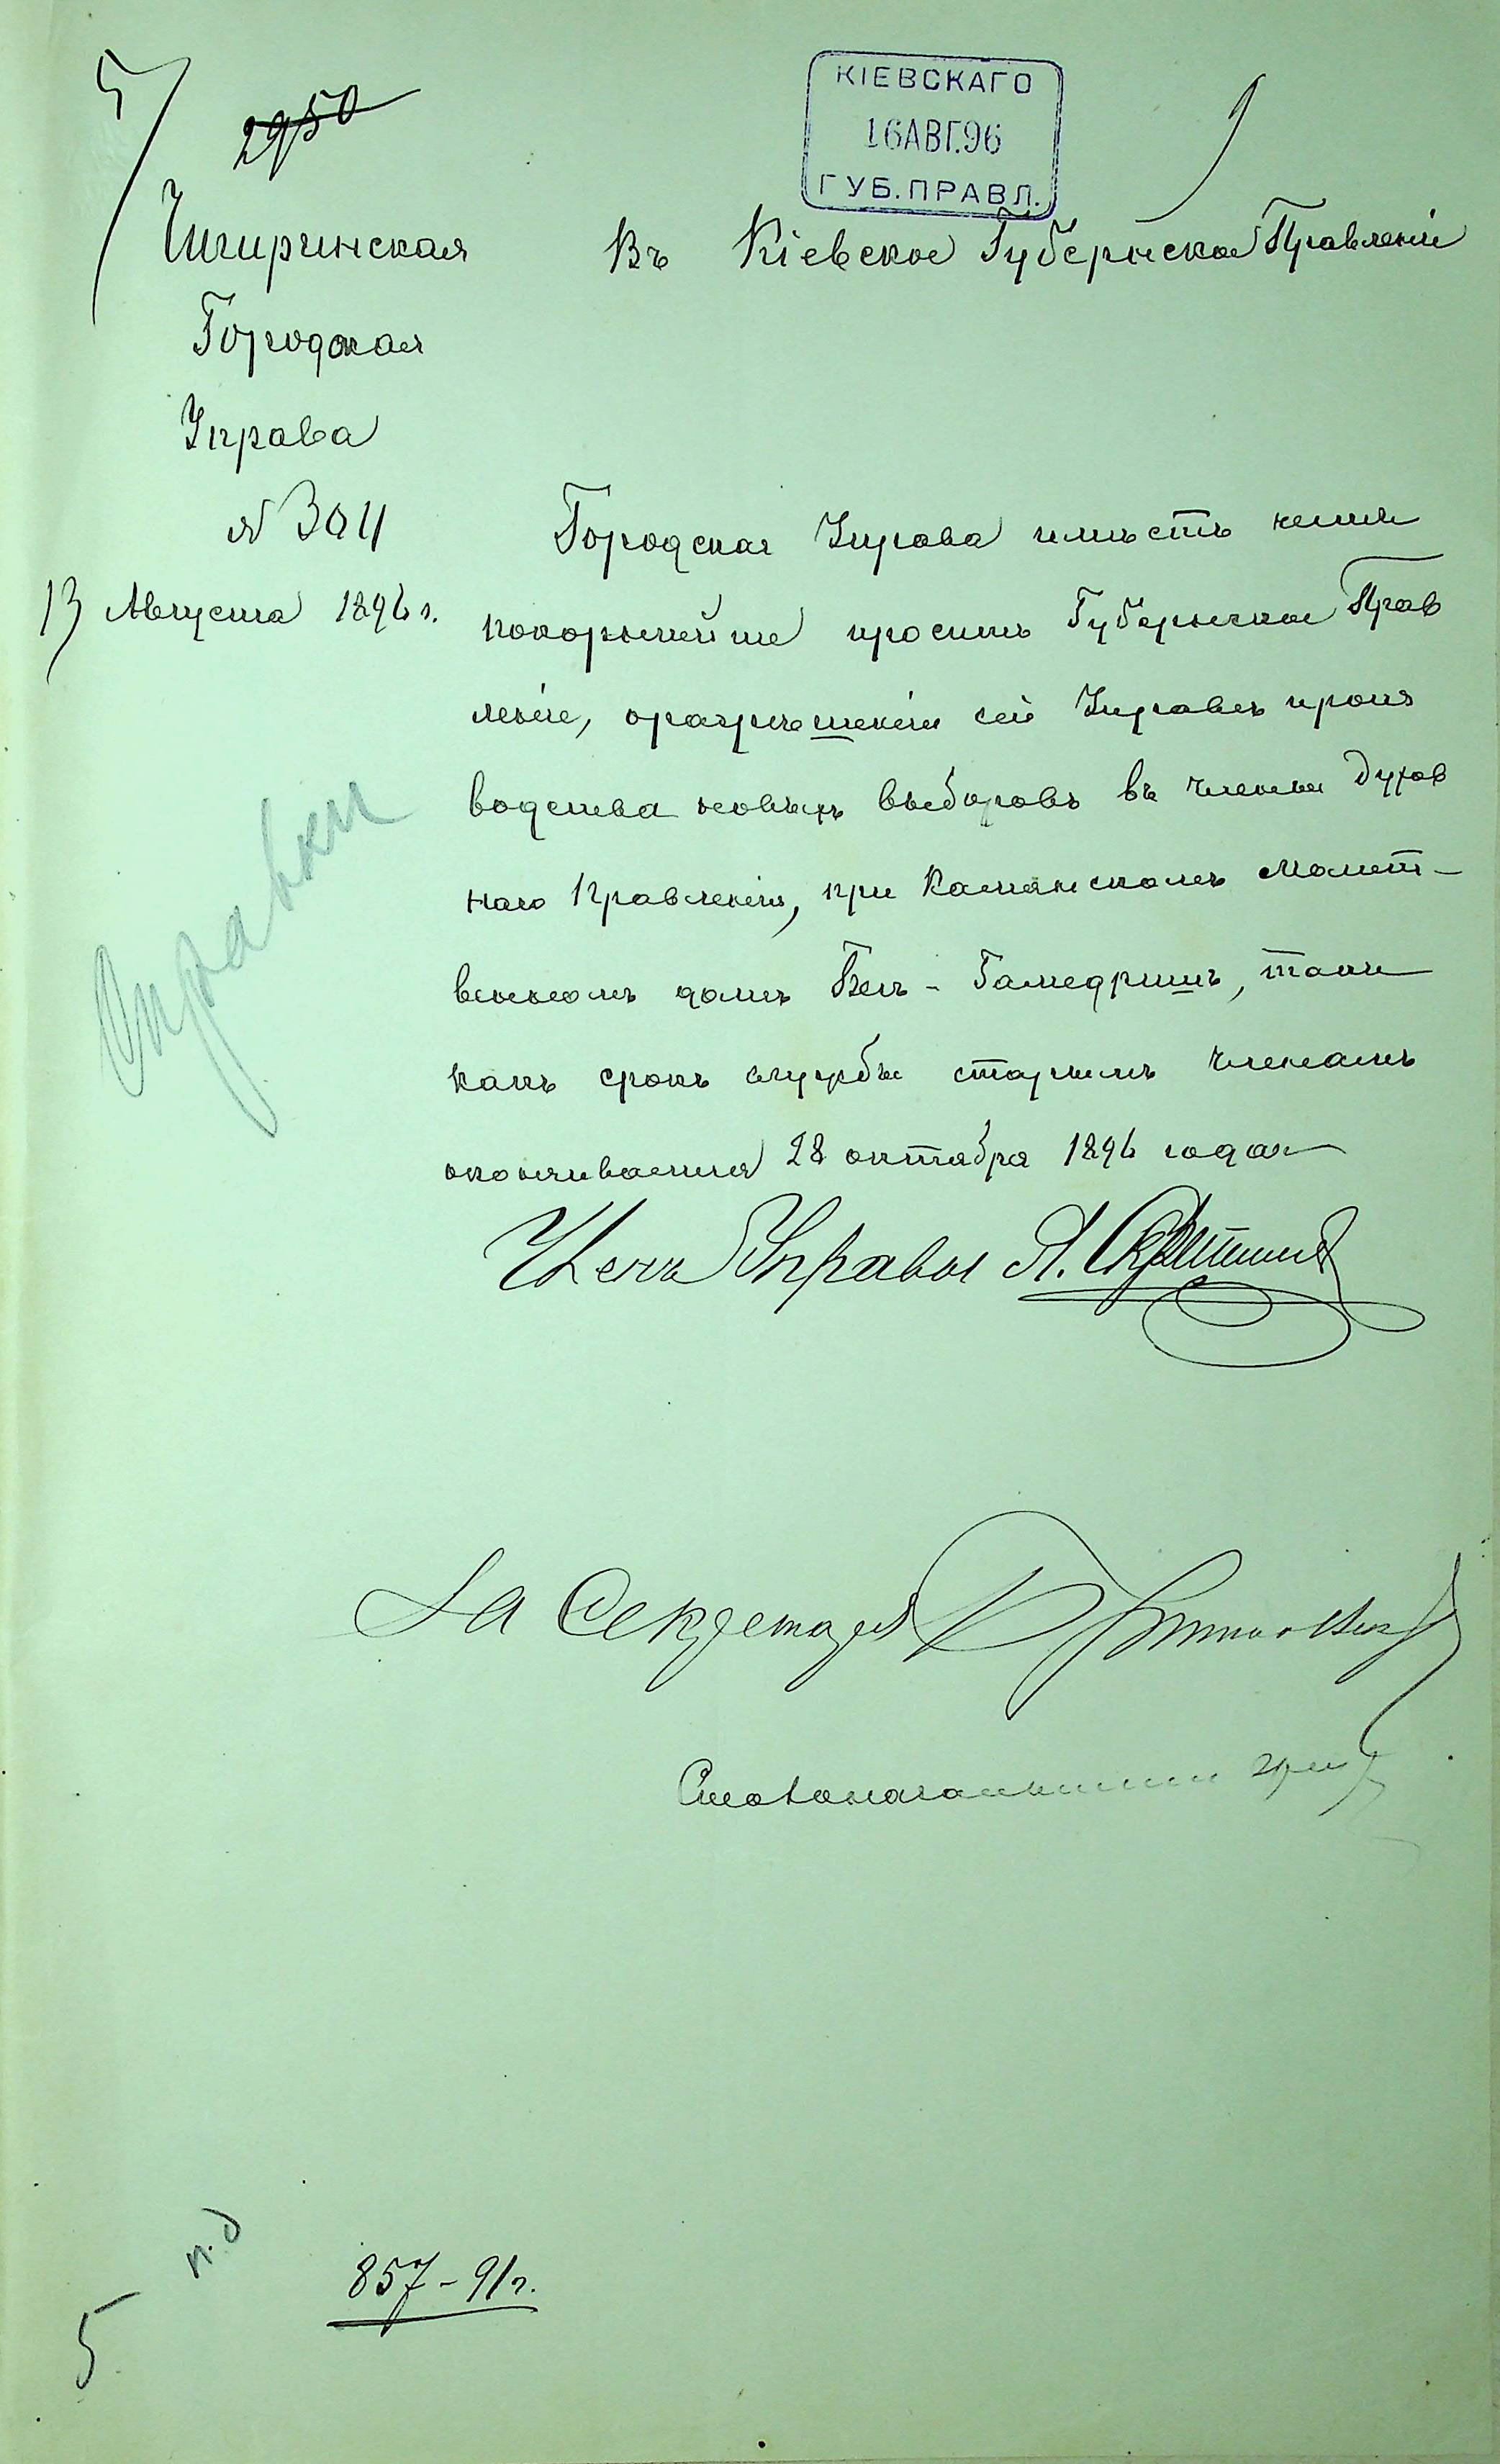 5
2950
КІЕВСКАГО
16 АВГ. 96
ГУБ. ПРАВЛ.
Чигиринская
Городская
Управа
№ 304
13 Августа 1896 г.
Въ Кіевское Губернское Правленіе
Городская Управа имѣетъ честь
покорнѣйше просить Губернское Прав
леніе, о разрѣшеніи сей Управѣ произ
водства новыхъ выборовъ въ члены Духов
наго Правленія, при Каменскомъ Молит-
венномъ домѣ Бет-Гамедришъ, такъ
какъ срокъ службы старымъ членамъ
оканчивается 28 октября 1896 года
Членъ Управы А.
За Секретаря
Столоначальникъ
Справки
п. д
857 - 91 г.
5